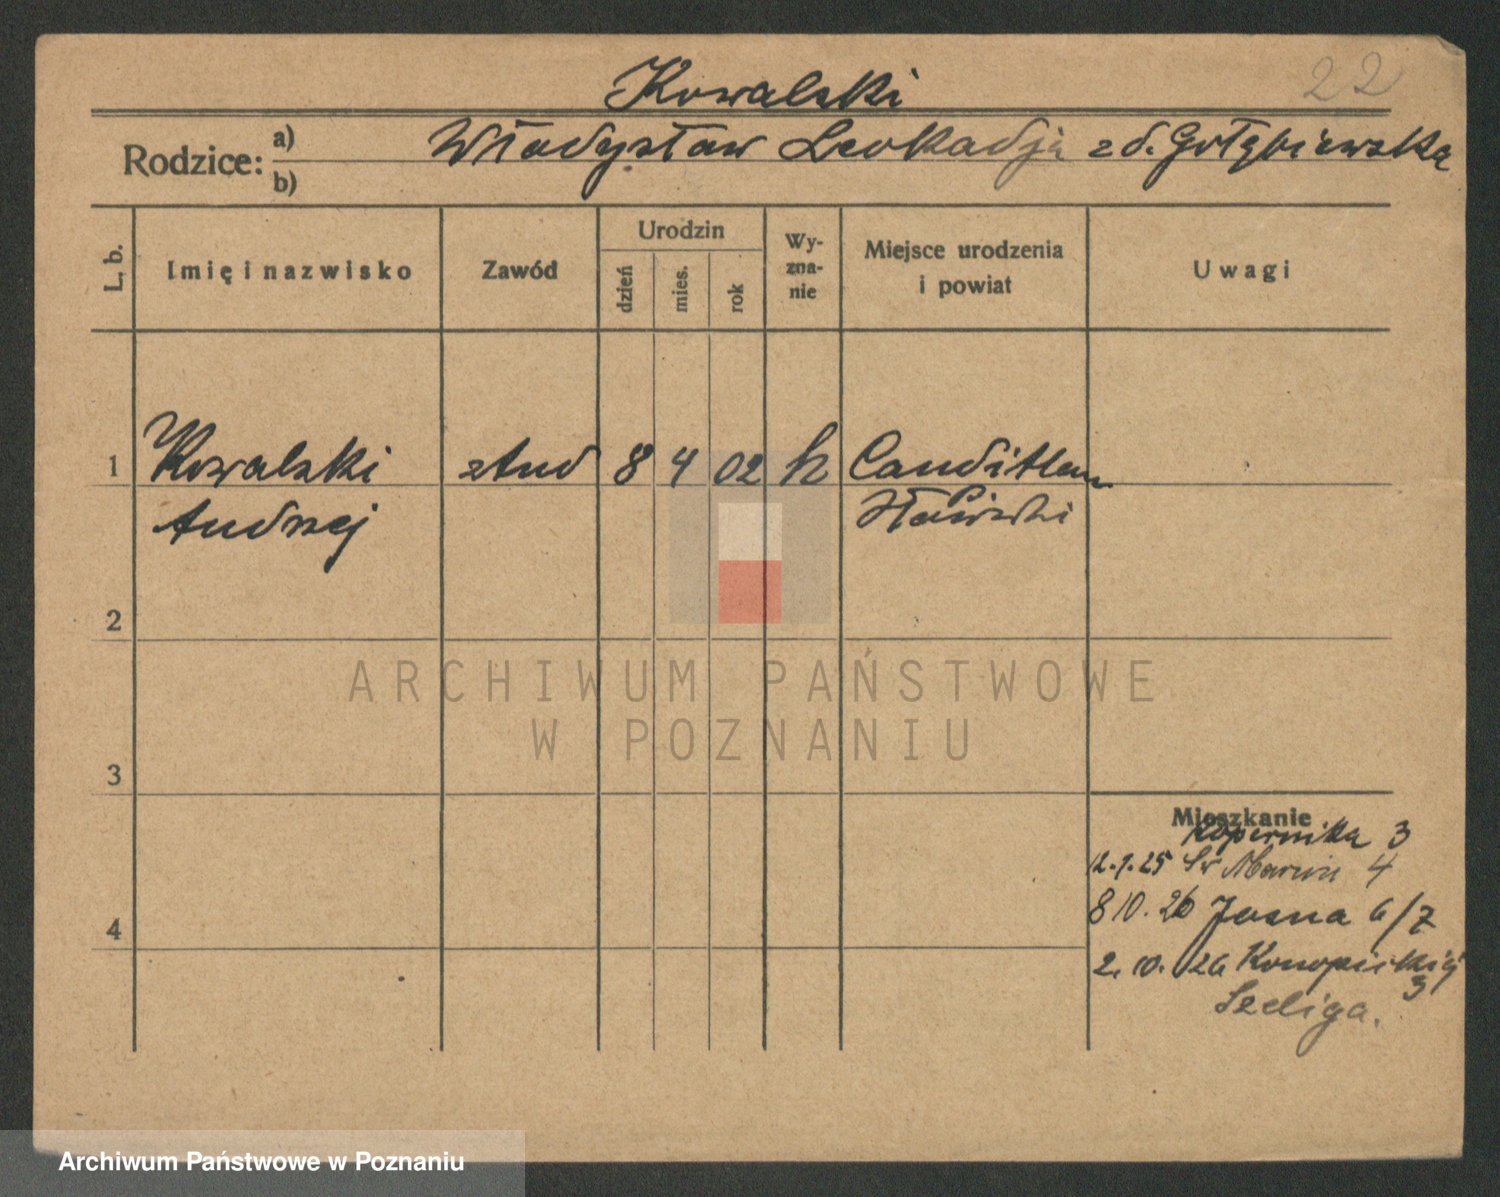 Kowalski 22
Rodzice: a) b) Władysław Leokadja zd. Gołębiewska
L. b. Imię i nazwisko Zawód Urodzin dzień mies. rok Wyznanie Miejsce urodzenia i powiat Uwagi
1 Kowalski stud 8 4 02
Andrzej
2
3
Mieszkanie
Kopernika 3
12.7.25 Św Marcin 4
4
8 10. 26 Jasna 6/7
2. 10. 26 Konopnickiej 3
Szeliga.
ARCHIWUM PAŃSTWOWE
W POZNANIU
Archiwum Państwowe w Poznaniu